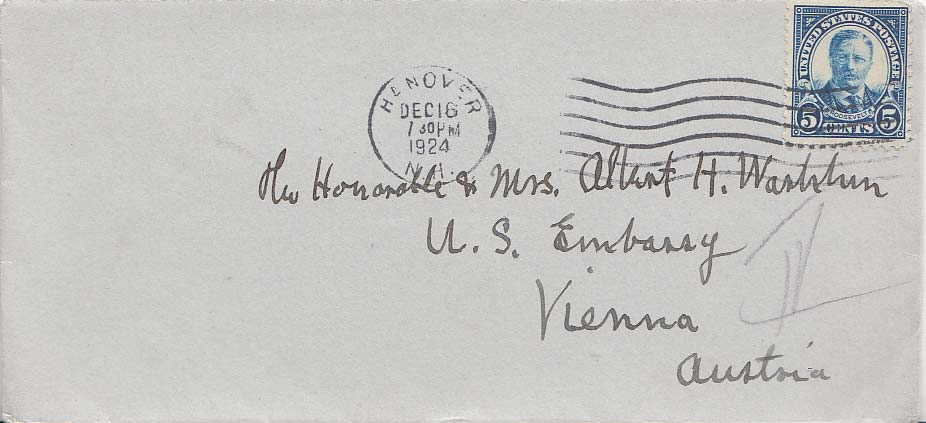 UNITED STATES POSTAGE
ROOSEVELT
5 CENTS 5
HANOVER
DEC 16
7 30 PM
1924
N.H.
The Honorable & Mrs. Albert H. Washburn
U. S. Embassy
Vienna
Austria